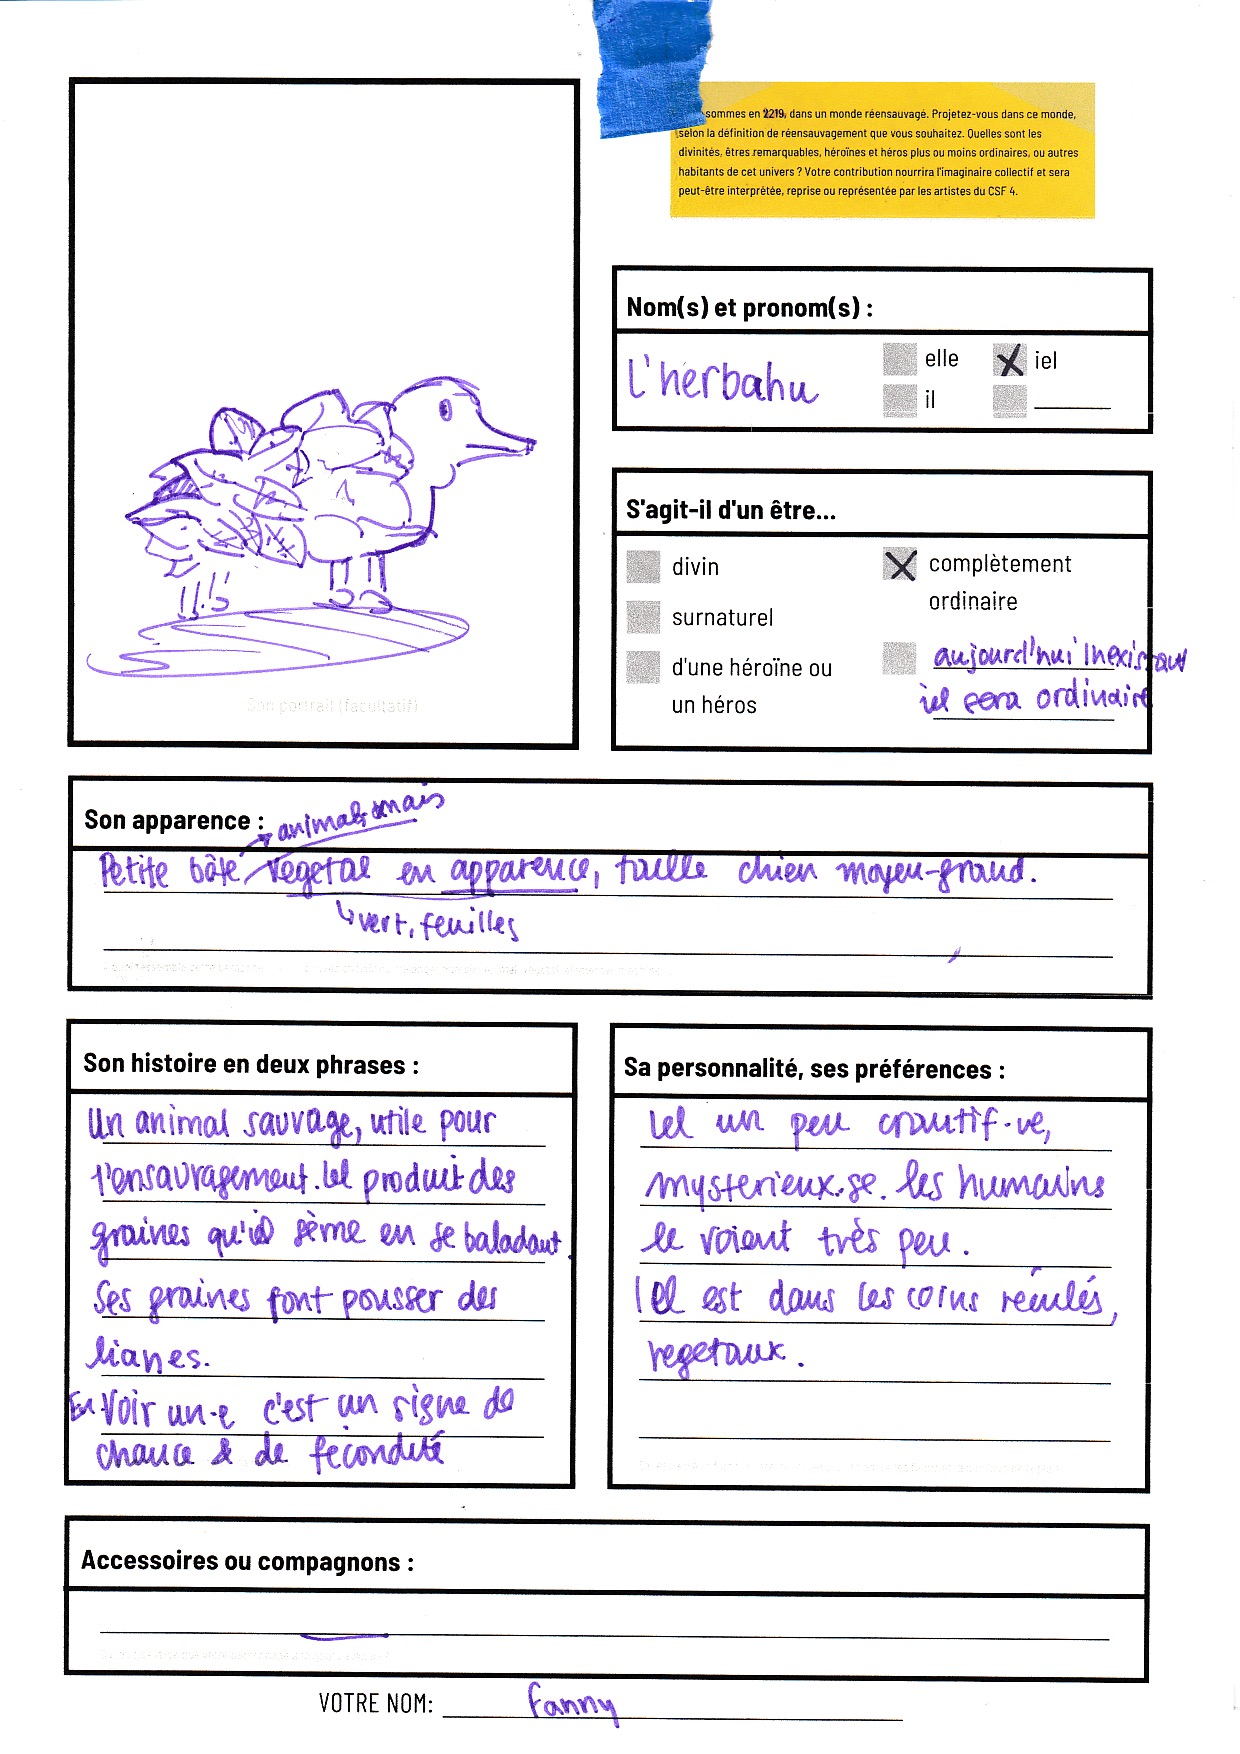 sommes en 2219, dans un monde réensauvagé. Projetez-vous dans ce monde,
selon la définition de réensauvagement que vous souhaitez. Quelles sont les
divinités, êtres remarquables, héroïnes et héros plus ou moins ordinaires, ou autres
habitants de cet univers ? Votre contribution nourrira l'imaginaire collectif et sera
peut-être interprétée, reprise ou représentée par les artistes du CSF 4.
Nom(s) et pronom(s) :
l'herbahu
elle
iel
il
S'agit-il d'un être...
divin
complètement
ordinaire
surnaturel
d'une héroïne ou
un héros
aujourd'hui inexistant
iel sera ordinaire
Son portrait (facultatif)
Son apparence :
animal, mais
Petite bête végétal en apparence, taille chien moyen-grand.
vert, feuilles
Son histoire en deux phrases :
Un animal sauvage, utile pour
l'ensauvagement. Iel produit des
graines qu'iel sème en se baladant.
Ses graines font pousser des
lianes.
En voir un·e c'est un signe de
chance & de fécondité
Sa personnalité, ses préférences :
Iel un peu craintif·ve,
mysterieux·se. les humains
le voient très peu.
Iel est dans les coins reculés,
vegetaux.
Accessoires ou compagnons :
VOTRE NOM: Fanny